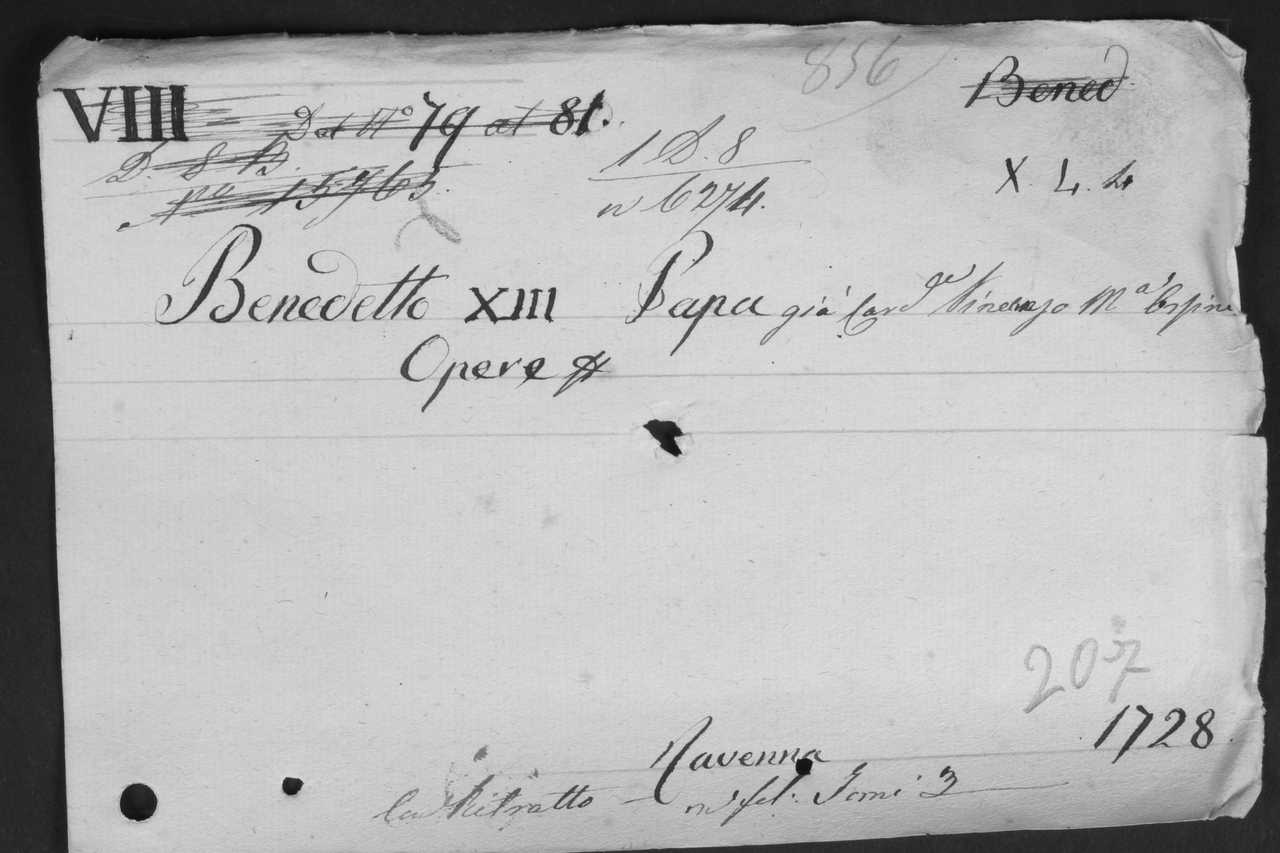 856
Bened
VIII Dal N° 79 al 81.
D. 8 B.
no 15763.
1 D. 8
n 6274.
X. 4. 4
Benedetto XIII Papa già Card.le Vincenzo M.a Orsini
Opere
207
Ravenna 1728
Con Ritratto in fol: Tomi 3